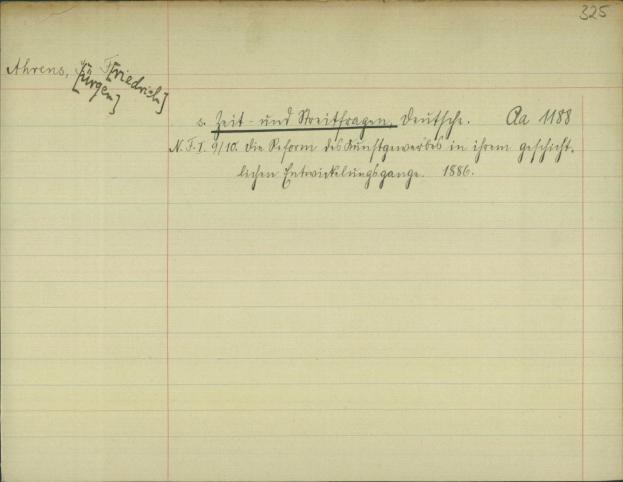 325
Ahrens, J[ürgen] F[riedrich]
s. Zeit- und Streitfragen, Deutsche. Qa 1188
N. F. I. 9/10. Die Reform des Kunstgewerbes in ihrem geschicht-
lichen Entwickelungsgange. 1886.